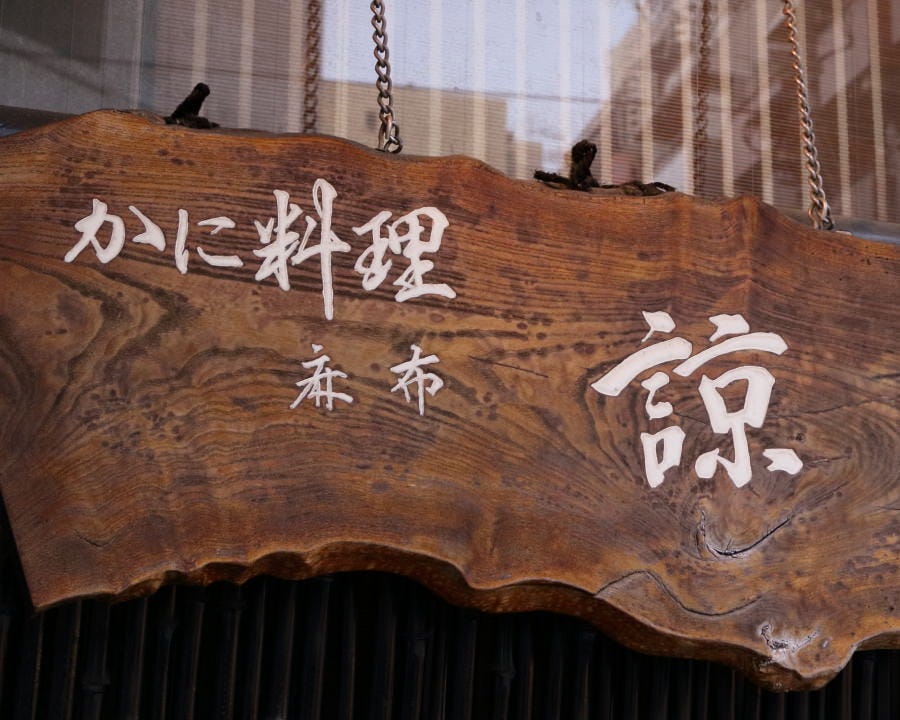 かに料理
麻布
諒